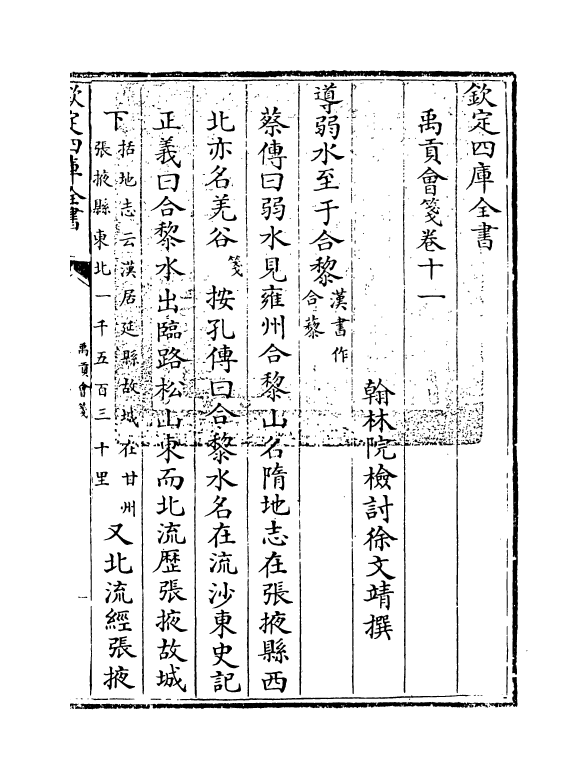 欽定四庫全書
禹貢會箋卷十一
翰林院檢討徐文靖撰
導弱水至于合黎漢書作合藜
蔡傳曰弱水見雍州合黎山名隋地志在張掖縣西
北亦名羌谷箋按孔傳曰合黎水名在流沙東史記
正義曰合黎水出臨路松山東而北流歷張掖故城
下括地志云漢居延縣故城在甘州張掖縣東北一千五百三十里又北流經張掖
欽定四庫全書
禹貢會箋
一